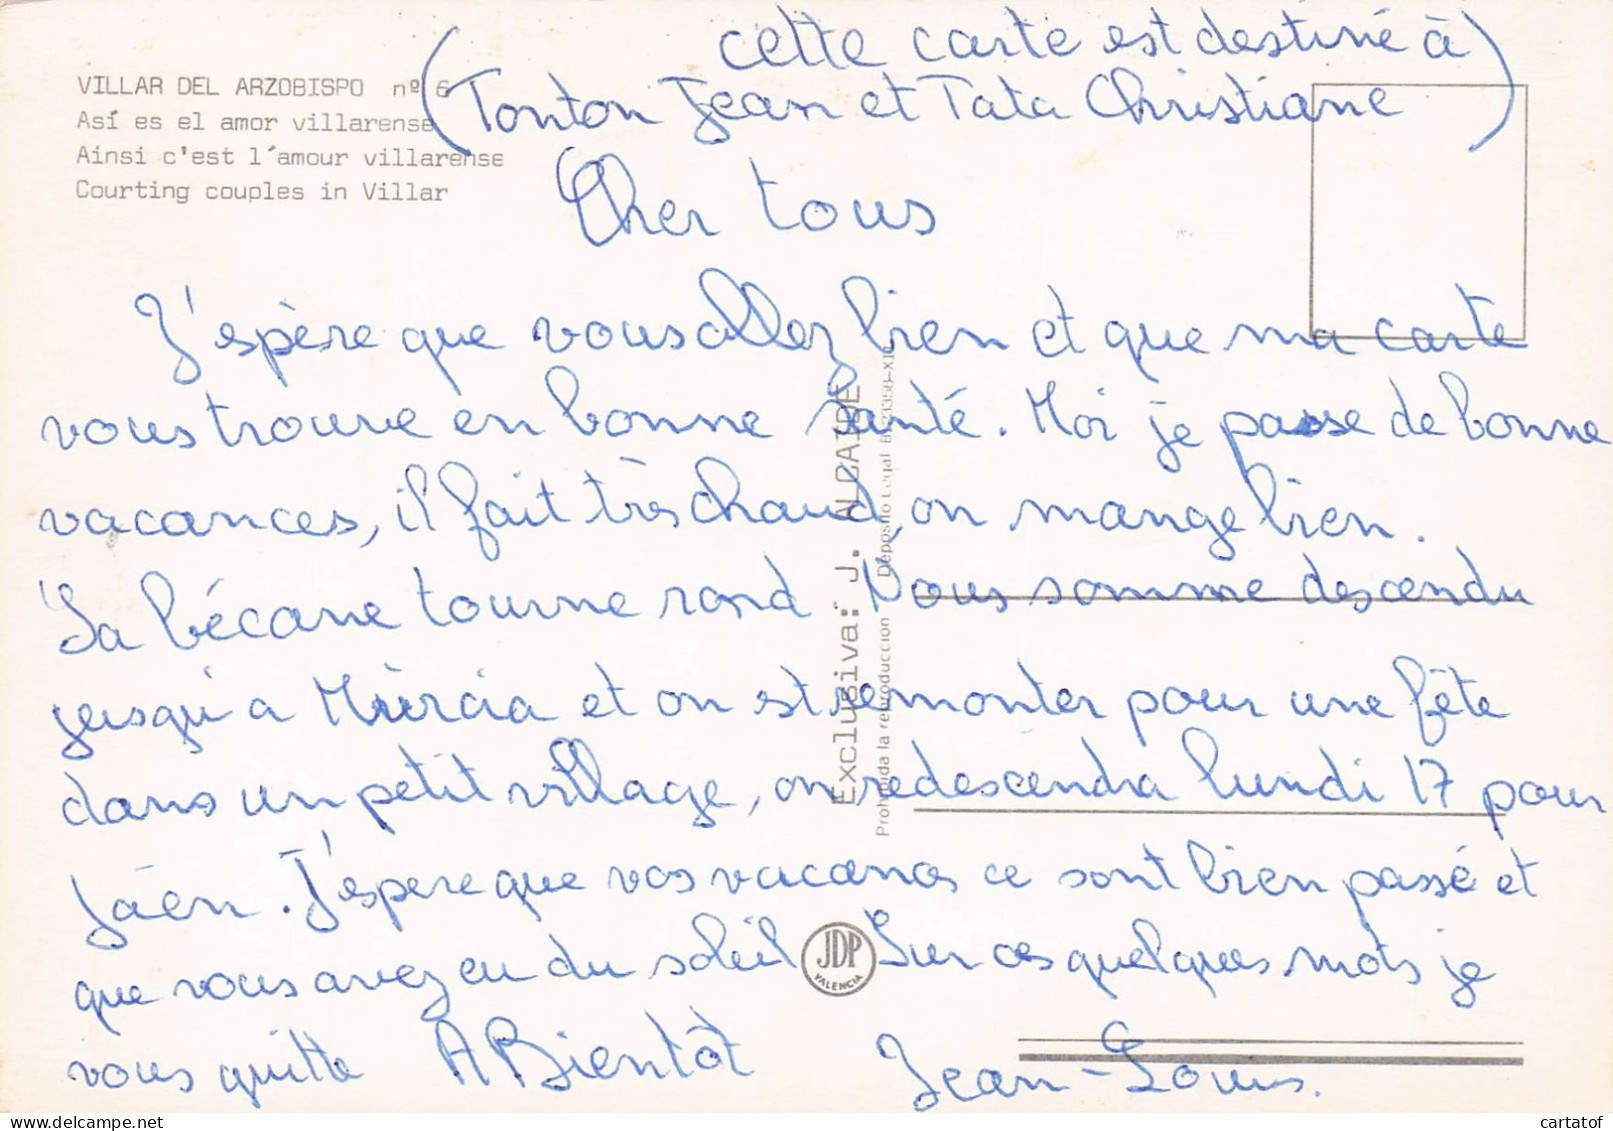 cette carte est destiné à
(Tonton Jean et Tata Christiane)
VILLAR DEL ARZOBISPO nº 6
Así es el amor villarense
Ainsi c'est l'amour villarense
Courting couples in Villar
Cher tous
J'espère que vous allez bien et que ma carte
vous trouve en bonne santé. Moi je passe de bonne
vacances, il fait très chaud, on mange bien.
La bécane tourne rond Nous somme descendu
jusqu'a Mùrcia et on est remonter pour une fête
dans un petit village, on redescendra lundi 17 pour
Jáen. J'espere que vos vacances ce sont bien passé et
que vous avez eu du soleil Sur ces quelques mots je
vous quitte A Bientôt Jean-Louis.
Exclusiva: J. ALCAIDE
Prohibida la reproducción Depósito Legal B.
JDP
VALENCIA
cartatof